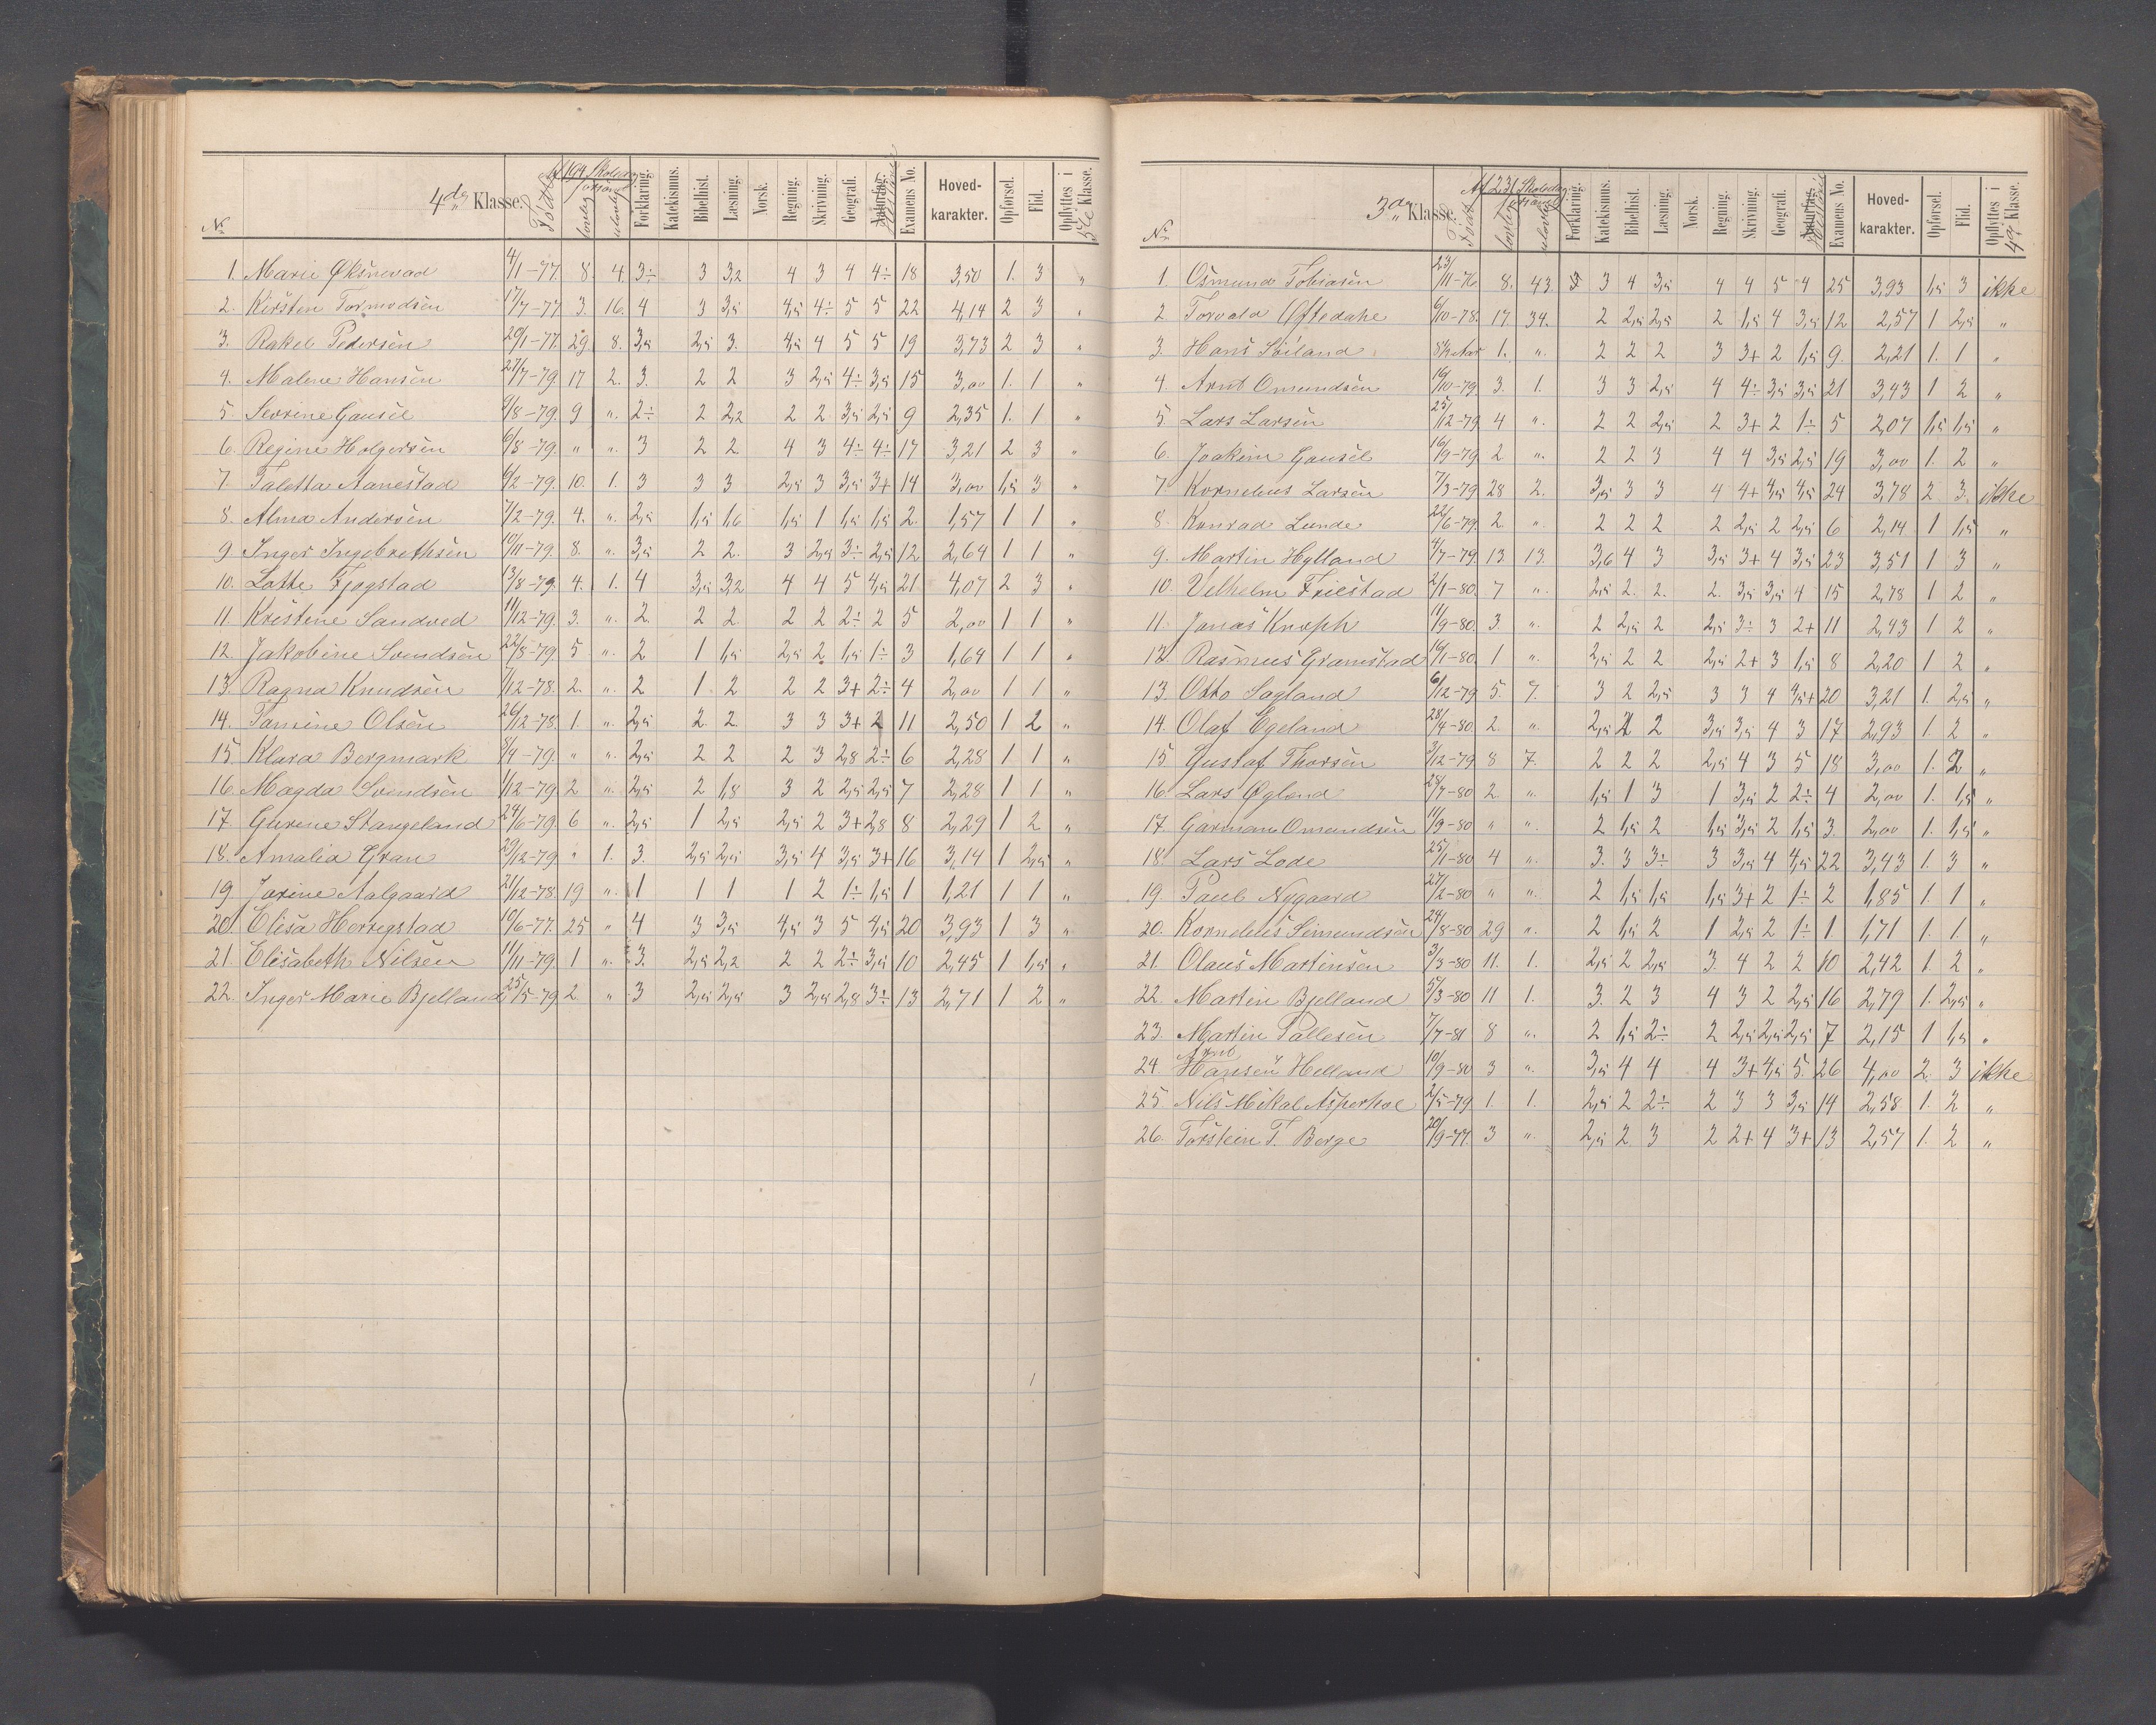 4de Klasse.
No Født Af 194 Skoledage forsømt lovlig ulovlig Forklaring. Katekismus. Bibelhist. Læsning. Norsk. Regning. Skrivning. Geografi. Naturfag. Examens No. Hovedkarakter. Opførsel. Flid. Opflyttes i 5te Klasse.
1. Marie Øksnevad 4/1-77. 8. 4. 3÷ 3 3,2 4 3 4 4÷ 18 3,50 1. 3 "
2. Kirsten Tormodsen 17/7-77 3. 16. 4 3 3,5 4,5 4÷ 5 5 22 4,14 2 3 "
3. Rakel Pedersen 20/1-77. 29. 8. 3,5 2,5 3. 4,5 4 5 5 19 3,73 2 3 "
4. Malene Hansen 27/7-79. 17 2. 3. 2 2 3 2,5 4÷ 3,5 15 3,00 1. 1 "
5. Sevrine Gausel 9/8-79. 9 ". 2÷ 2 2,2 2 2 3,5 2,5 9 2,35 1. 1 "
6. Regine Holgersen 6/8-79. " ". 3 2 2 4 3 4÷ 4÷ 17 3,21 2 3 "
7. Taletta Aanestad 6/2-79. 10. 1. 3 3 3 2,5 3 3,5 3+ 14 3,00 1,5 3 "
8. Alma Andersen 7/2-79. 4. ". 2,5 1,5 1,6 1,5 1 1,5 1,5 2. 1,57 1 1 "
9. Inger Ingebrethsen 10/11-79. 8. ". 3,5 2 2. 3 2,5 3÷ 2,5 12 2,64 1 1 "
10. Lotte Fjogstad 13/8-79. 4. 1. 4 3,5 3,2 4 4 5 4,5 21. 4,07 2 3 "
11. Kristine Sandved 11/12-79. 3. ". 2. 2 2. 2 2 2÷ 2 5 2,00 1 1 "
12. Jakobine Svendsen 22/8-79. 5 ". 2 1 1,5 2,5 2 1,5 1÷ 3 1,64 1 1 "
13. Ragna Knudsen 1/12-78. 2. ". 2 1 2 2 2 3+ 2÷ 4 2,00 1 1 "
14. Tomine Olsen 26/12-78. 1. ". 2,5 2. 2. 3 3 3+ 2 11 2,50 1 2 "
15 Klara Bergmark 8/4-79. " ". 2,5 2 2 2 3 2,8 2÷ 6 2,28 1 1 "
16. Magda Svendsen 1/12-79 2 ". 2,5 2 1,8 3 2 2,5 2,5 7 2,28 1 1. "
17. Gurine Stangeland 24/6-79. 6 ". 2,5 1 2,5 2,5 2 3+ 2,8 8 2,29 1 2 "
18. Amalia Gran 29/12-79 " 1. 3. 2,5 2,5 3,5 4 3,5 3+ 16 3,14 1 2,5 "
19 Jorine Aalgaard 21/12-78. 19 ". 1 1 1 1 2 1÷ 1,5 1 1,21 1 1 "
20. Elisa Herregstad 10/6-77. 25 " 4 3 3,5 4,5 3 5 4,5 20 3,93 1 3 "
21. Elisabeth Nilsen 11/11-79. 1 ". 3. 2,5 2,2 2 2 2÷ 3,5 10 2,45 1 1,5 "
22. Inger Marie Bjelland 25/5-79 2 " 3 2,5 2,5 3 2,5 2,8 3÷ 13 2,71 1 2 "
3die Klasse.
No Født Af 231 Skoledage forsømt lovlig ulovlig Forklaring. Katekismus. Bibelhist. Læsning. Norsk. Regning. Skrivning. Geografi. Naturfag. Examens No. Hovedkarakter. Opførsel. Flid. Opflyttes i 4de Klasse.
1. Osmund Tobiasen 23/11-76. 8. 43 3 4 3,5 4 4 5 4 25 3,93 1,5 3 ikke
2. Torvald Oftedahe 6/10-78. 17 34. 2 2,5 2,5 2 1,5 4 3,5 12 2,57 1 2,5 "
3. Hans Soiland 8½ Aar 1. ". 2 2 2 3 3+ 2 1,5 9. 2,21 1. 1 "
4. Arnt Omundsen 16/10-79. 3. 1. 3 3 2,5 4 4÷ 3,5 3,5 21 3,43 1 2 "
5. Lars Larsen 25/12-79 4 ". 2 2 2,5 2 3+ 2 1÷ 5 2,07 1,5 1,5 "
6. Joakim Gausel 16/9-79 2 ". 2 2 3 4 4 3,5 2,5 19 3,00 1. 2 "
7. Kornelius Larsen 7/3-79 28 2. 3,5 3 3 4 4+ 4,5 4,5 24 3,78 2 3. ikke
8. Konrad Lunde 22/6-79. 2. ". 2 2 2 2 2,5 2 2,5 6 2,14 1 1,5 "
9. Martin Hylland 4/7-79. 13. 13. 3,6 4 3 3,5 3+ 4 3,5 23 3,51 1 3 "
10. Velhelm Friestad 2/1-80. 7 ". 2,5 2. 2. 2. 3,5 3,5 4 15 2,78 1 2 "
11. Jonas Knoph 11/9-80. 3. ". 2 2,5 2 2,5 3÷ 3 2+ 11 2,43 1 2 "
12. Rasmus Gramstad 16/1-80. 1 ". 2,5 2 2 2,5 2+ 3 1,5 8 2,20 1 2 "
13. Otto Sagland 6/12-79 5. 7. 3 2 2,5 3 3 4 4,5+ 20 3,21 1. 2,5 "
14. Olaf Egeland 28/4-80. 2. ". 2,5 2 2 3,5 3,5 4 3 17 2,93 1. 2 "
15. Gustaf Thorsen 3/12-79 8 7. 2 2 2 2,5 4 3 5 18 3,00 1. 2 "
16. Lars Ogland 28/7-80 2. ". 1,5 1 3 1 3,5 2 2÷ 4 2,00 1. 1,5 "
17. Garman Omundsen 11/9-80 " ". 2 1,5 2 1,5 3,5 2 1,5 3. 2,00 1. 1,5 "
18. Lars Lode 25/1-80 4 ". 3. 3 3÷ 3 3,5 4 4,5 22 3,43 1. 3 "
19. Paul Nygaard 27/2-80 " ". 2 1,5 1,5 1,5 3+ 2 1÷ 2 1,85 1. 1 "
20. Kornelius Simundsen 24/8-80 29 ". 2 1,5 2 1 2,5 2 1÷ 1. 1,71 1. 1. "
21. Olaus Martinsen 3/3-80 11. 1. 2,5 2 2,5 3. 4 2 2 10 2,42 1. 2 "
22. Martin Bjelland 5/3-80 11 1. 3. 2 3 4 3 2 2,5 16 2,79 1. 2,5 "
23. Martin Pallesen 7/7-81 8 ". 2 1,5 2÷ 2 2,5 2,5 2,5 7 2,15 1 1,5 "
24. Arnt Hansen Helland 10/9-80 3 ". 3,5 4 4 4 3+ 4,5 5. 26 4,00 2. 3 ikke
25. Nils Mikal Asperhol 2/5-79 1. 1. 2,5 2 2÷ 2 3 3 3,5 14 2,58 1. 2 "
26. Torstein T. Berge 20/9-77. 3 ". 2,5 2 3 2 2+ 4 3+ 13 2,57 1. 2 "